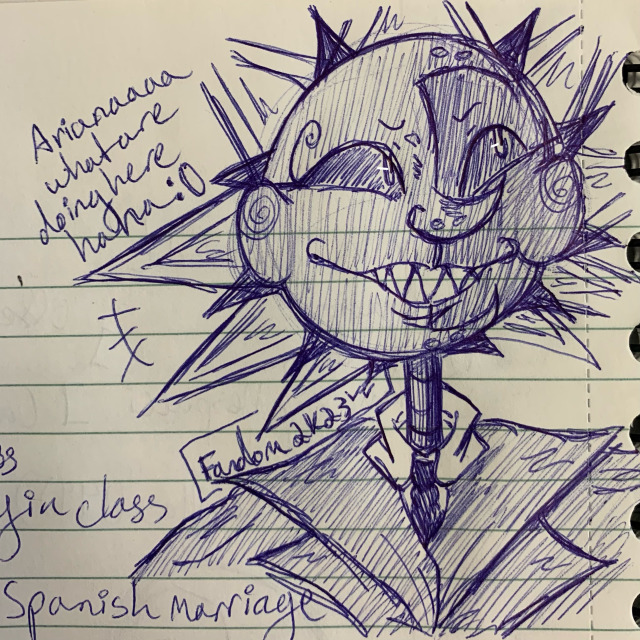 Arianaaaa
what are
doing here
haha :O
Fandom 2k23
in class
Spanish Marriage